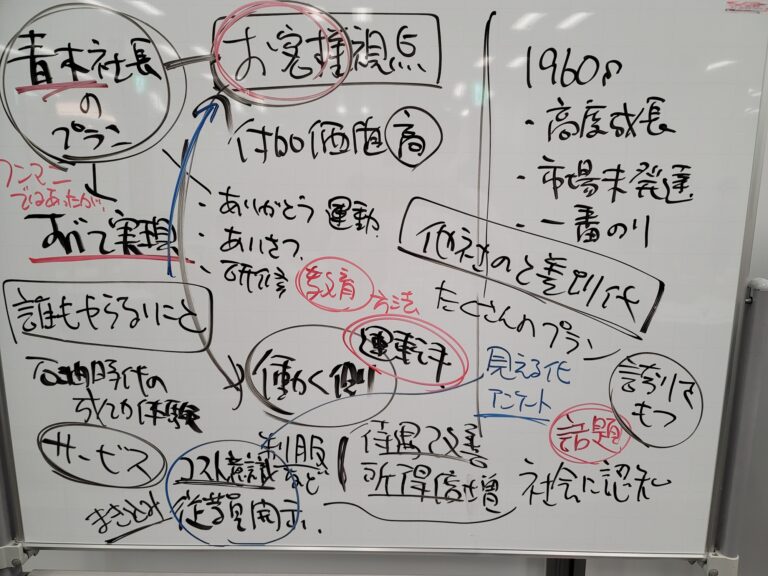 青木社長
の
プラン
お客様視点
付加価値 高
ワンマン
ではあったが
すべて実現
・ありがとう 運動
・あいさつ
・研修 教育 方法
1960's
・高度成長
・市場未発達
・一番のり
他社のと差別代
たくさんのプラン
誰もやらないこと
働く側
運転手
見える化
アンケート
誇りを
もつ
話題
時代の
体験
サービス
コスト意識
制服
など
従業員開示
待遇改善
所得倍増
社会に認知